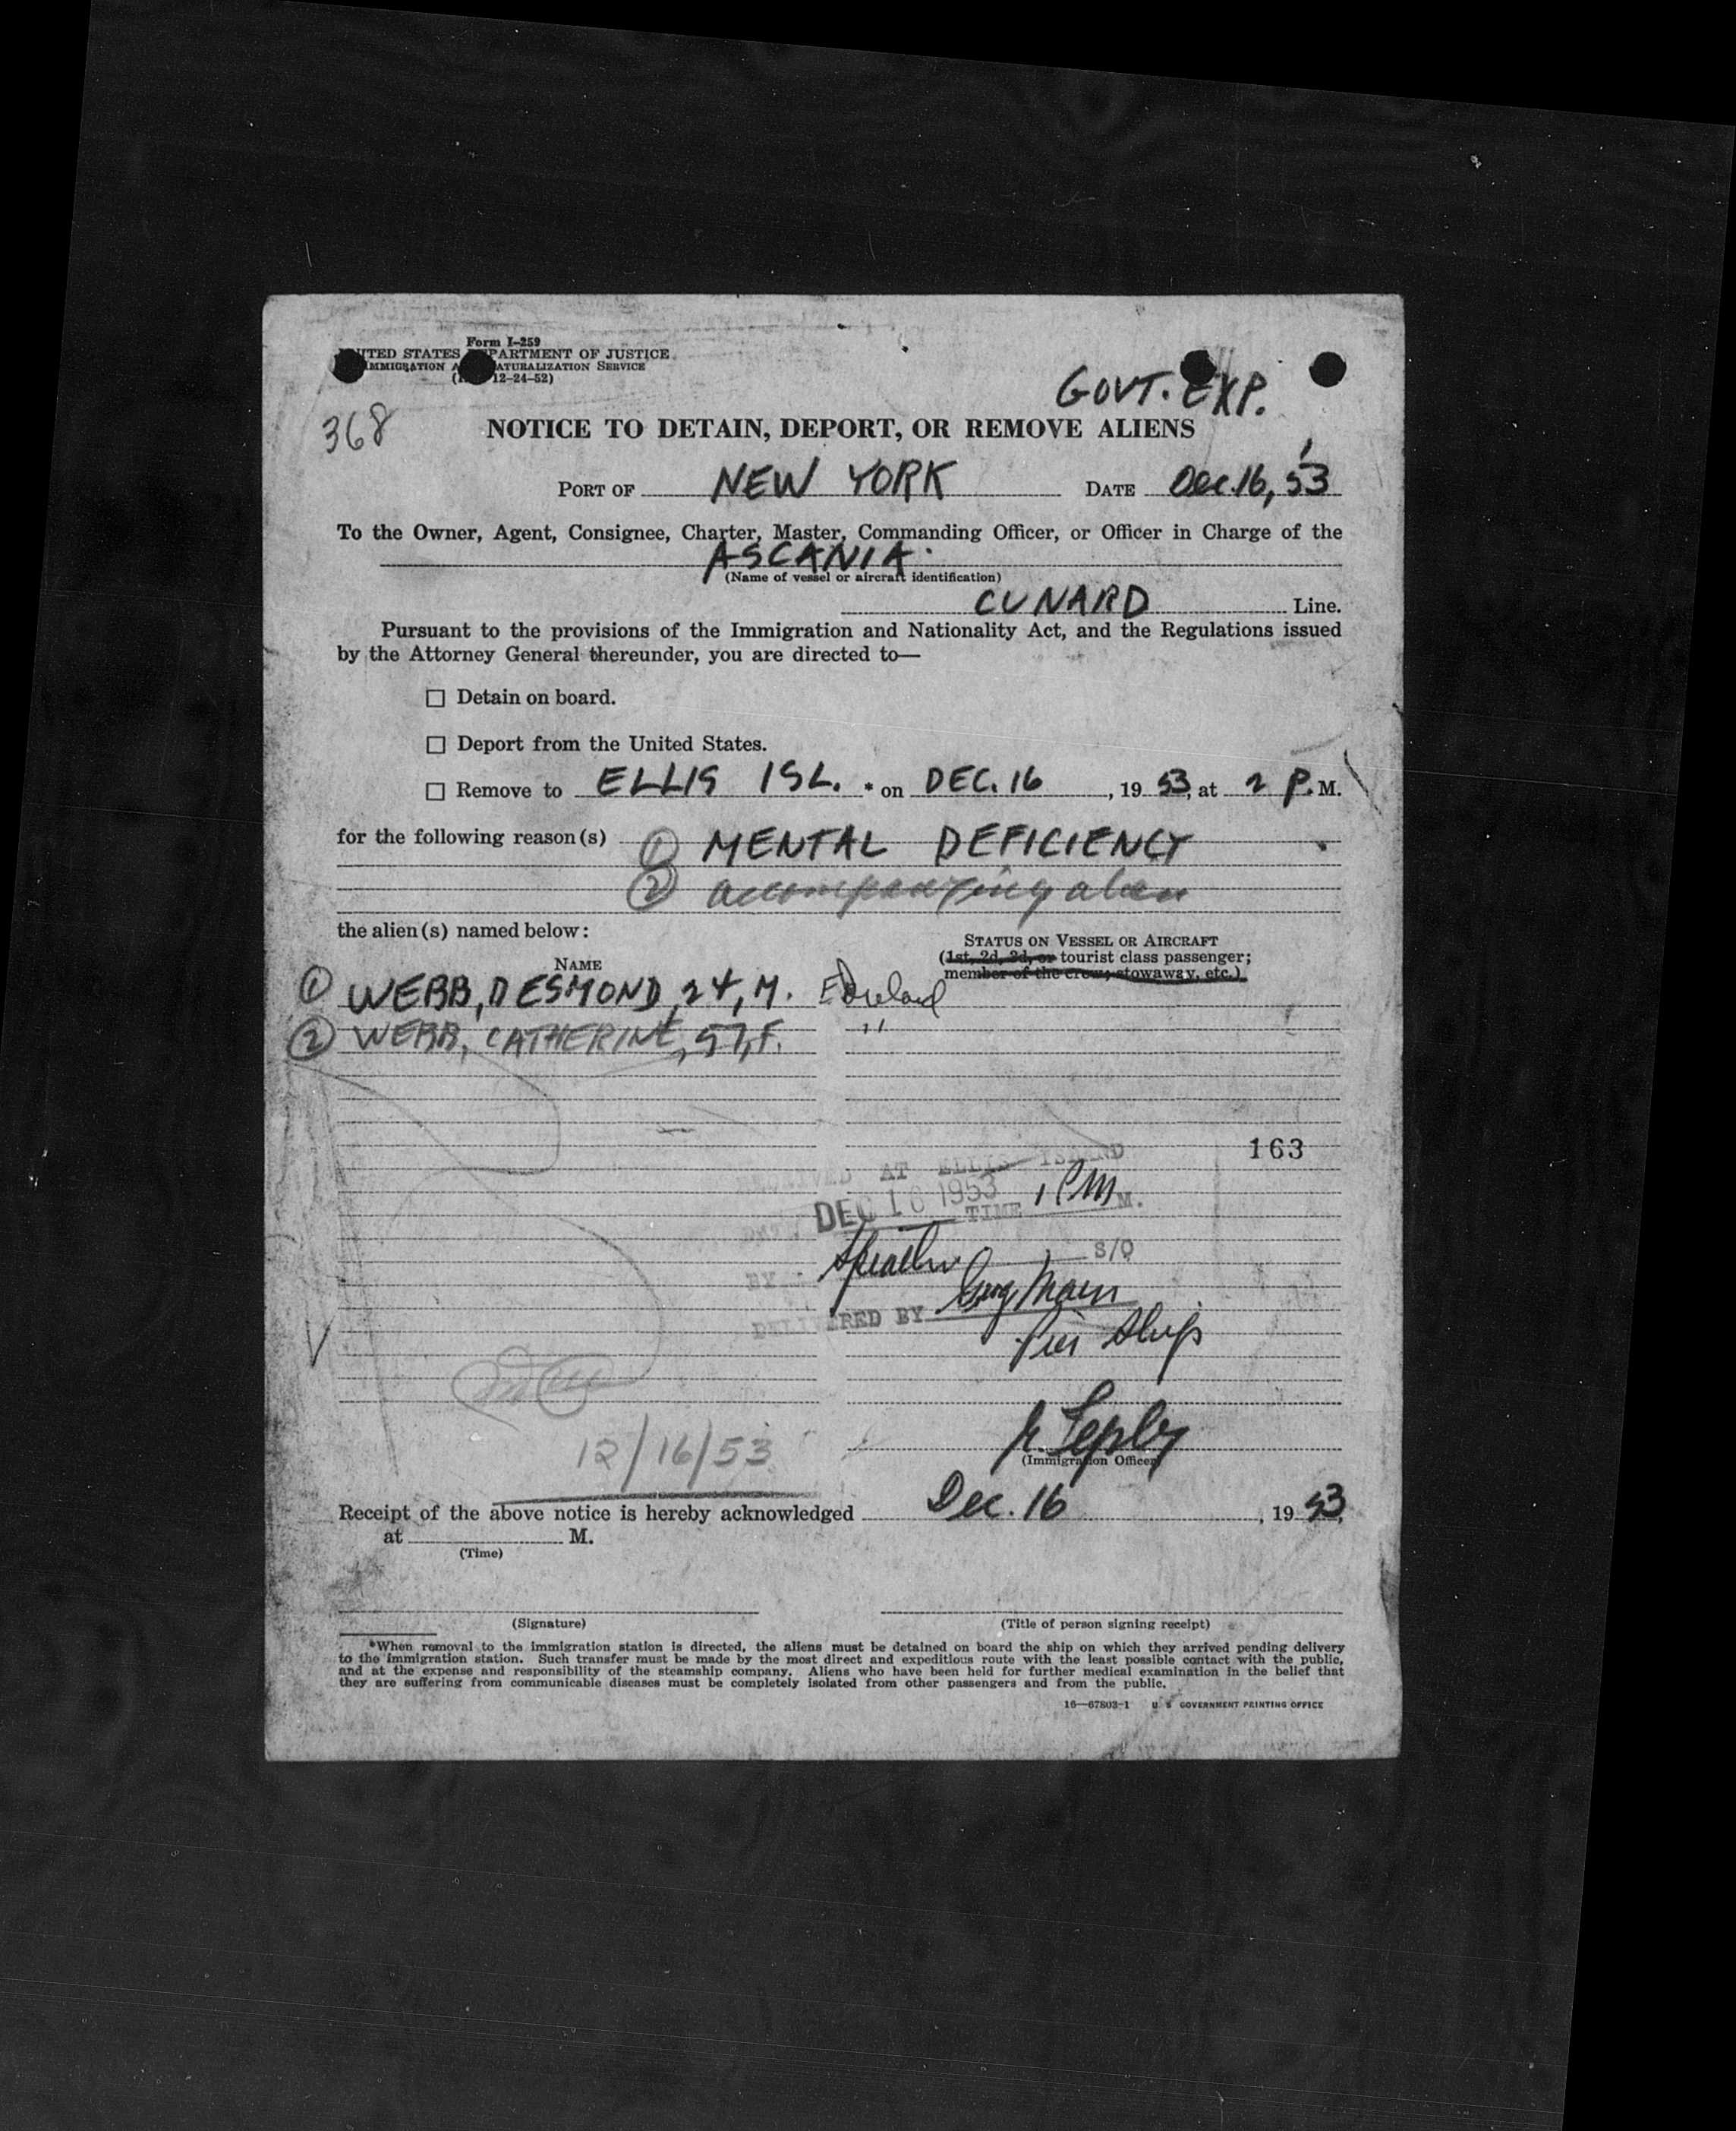 Form I-259
UNITED STATES DEPARTMENT OF JUSTICE
IMMIGRATION AND NATURALIZATION SERVICE
12-24-52)
GOVT. EXP.
368
NOTICE TO DETAIN, DEPORT, OR REMOVE ALIENS
PORT OF NEW YORK DATE Dec. 16, 53
To the Owner, Agent, Consignee, Charter, Master, Commanding Officer, or Officer in Charge of the
ASCANIA
(Name of vessel or aircraft identification)
CUNARD Line.
Pursuant to the provisions of the Immigration and Nationality Act, and the Regulations issued
by the Attorney General thereunder, you are directed to—
☐ Detain on board.
☐ Deport from the United States.
☐ Remove to ELLIS ISL. * on DEC. 16, 19 53, at 2 P. M.
for the following reason(s) ① MENTAL DEFICIENCY
② accompanying alien
the alien(s) named below:
STATUS ON VESSEL OR AIRCRAFT
(1st, 2d, 3d, or tourist class passenger;
member of the crew; stowaway, etc.)
NAME
① WEBB, DESMOND, 24, M.
② WEBB, CATHERINE, 57, F. "
163
RECEIVED AT ELLIS ISLAND
DATE DEC 16 1953 TIME 1 PM M.
BY S/O
DELIVERED BY
12/16/53
(Immigration Officer)
Receipt of the above notice is hereby acknowledged Dec. 16, 19 53,
at M.
(Time)
(Signature)
(Title of person signing receipt)
*When removal to the immigration station is directed, the aliens must be detained on board the ship on which they arrived pending delivery
to the immigration station. Such transfer must be made by the most direct and expeditious route with the least possible contact with the public,
and at the expense and responsibility of the steamship company. Aliens who have been held for further medical examination in the belief that
they are suffering from communicable diseases must be completely isolated from other passengers and from the public.
16—67803-1 U. S. GOVERNMENT PRINTING OFFICE